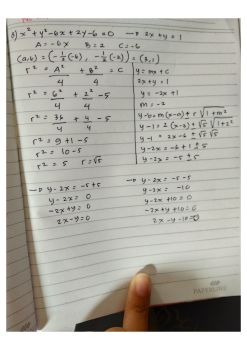 3) x² + y² - 6x + 2y - 6 = 0 → 2x + y = 1
A = -6x B = 2 C = -6
(a,b) = (-½(-6), -½(-2)) = (3,1)
r² = A²/4 + B²/4 = C
r² = 6²/4 + 2²/4 - 5
r² = 36/4 + 4/4 - 5
r² = 9 + 1 - 5
r² = 10 - 5
r² = 5 r = √5
y = mx + c
2x + y = 1
y = -2x + 1
m = -2
y - b = m(x - a) ± r √1 + m²
y - 1 = 2 (x - 3) ± √5 √1 + 2²
y - 1 = 2x - 6 ± √5 √5
y - 2x = -6 + 1 ± 5
y - 2x = -5 ± 5
→ y - 2x = -5 + 5
y - 2x = 0
-2x + y = 0
2x - y = 0
→ y - 2x = -5 - 5
y - 2x = -10
y - 2x + 10 = 0
-2x + y + 10 = 0
2x - y - 10 = 0
PAPERLINE